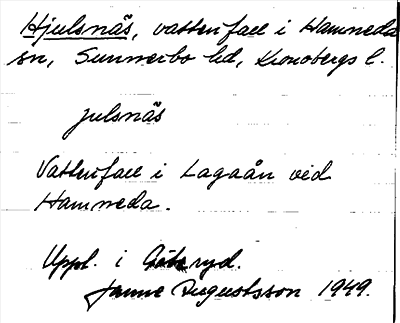 Hjulsnäs, vattenfall i Hamneda
sn, Sunnerbo hd, Kronobergs l.
julsnäs
Vattenfall i Lagaån vid
Hamneda.
Uppl. i Göteryd.
Janne Augustsson 1949.